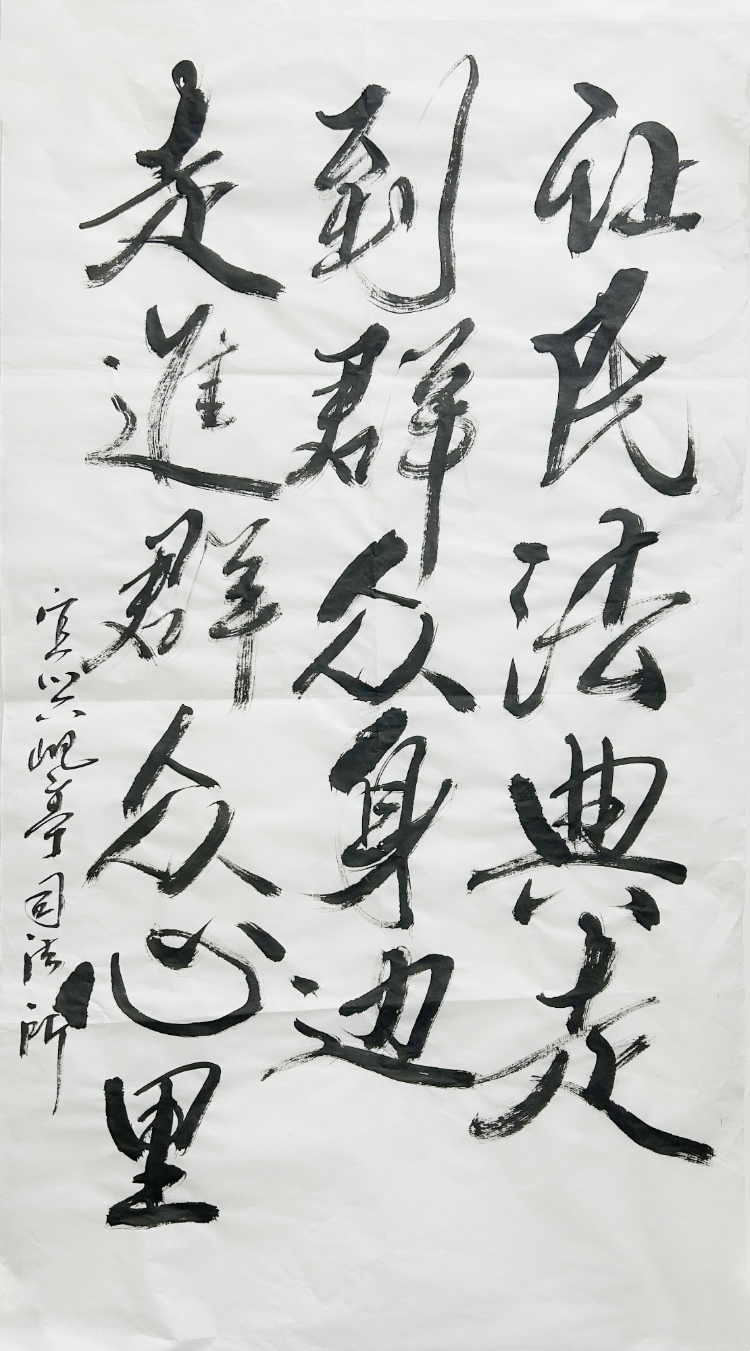 让民法典走
到群众身边
走進群众心里
宜兴岘亭司法所